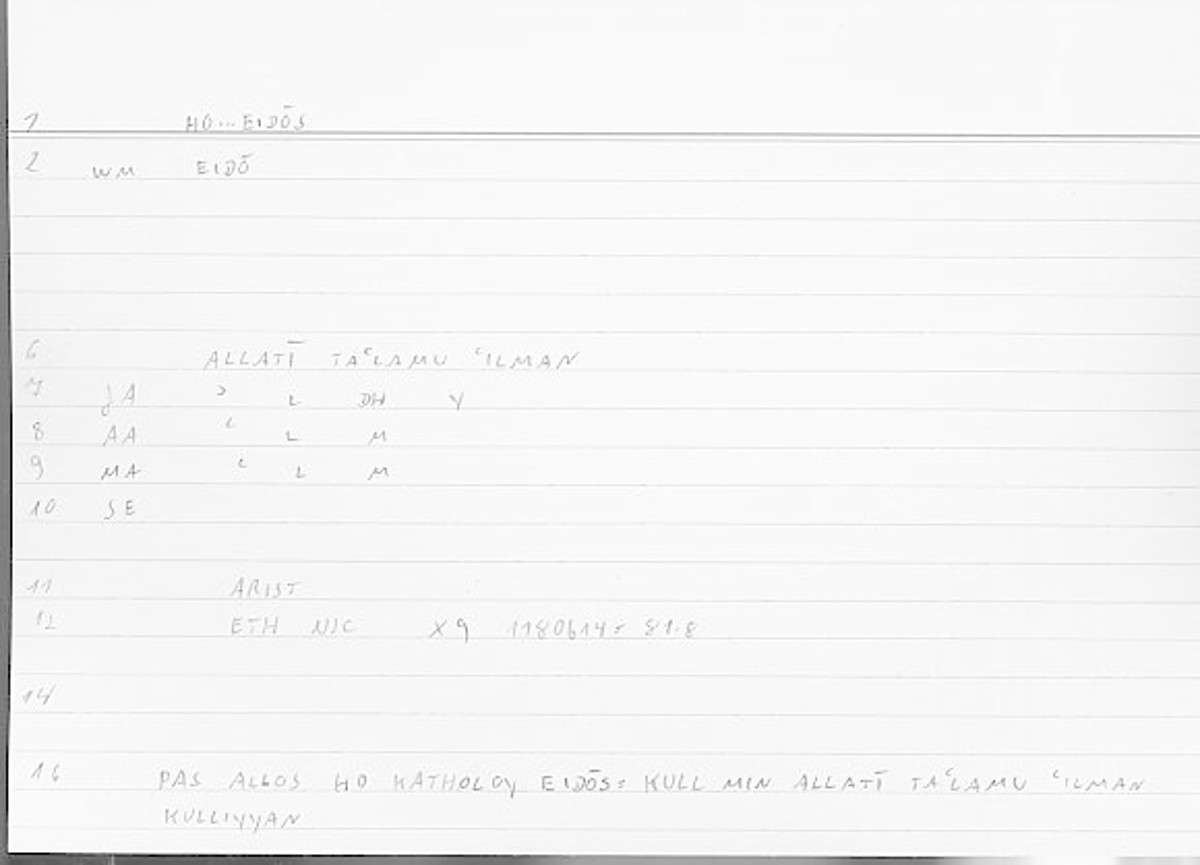 1 HO...EIDŌS
2 WM EIDŌ
6 ALLATĪ TAʿLAMU ʿILMAN
7 JA ʾ L DH Y
8 AA ʿ L M
9 MA ʿ L M
10 SE
11 ARIST
12 ETH NIC X 9 1180b14 = 81.8
14
16 PAS ALLOS HO KATHOLOY EIDŌS = KULL MIN ALLATĪ TAʿLAMU ʿILMAN
KULLIYYAN